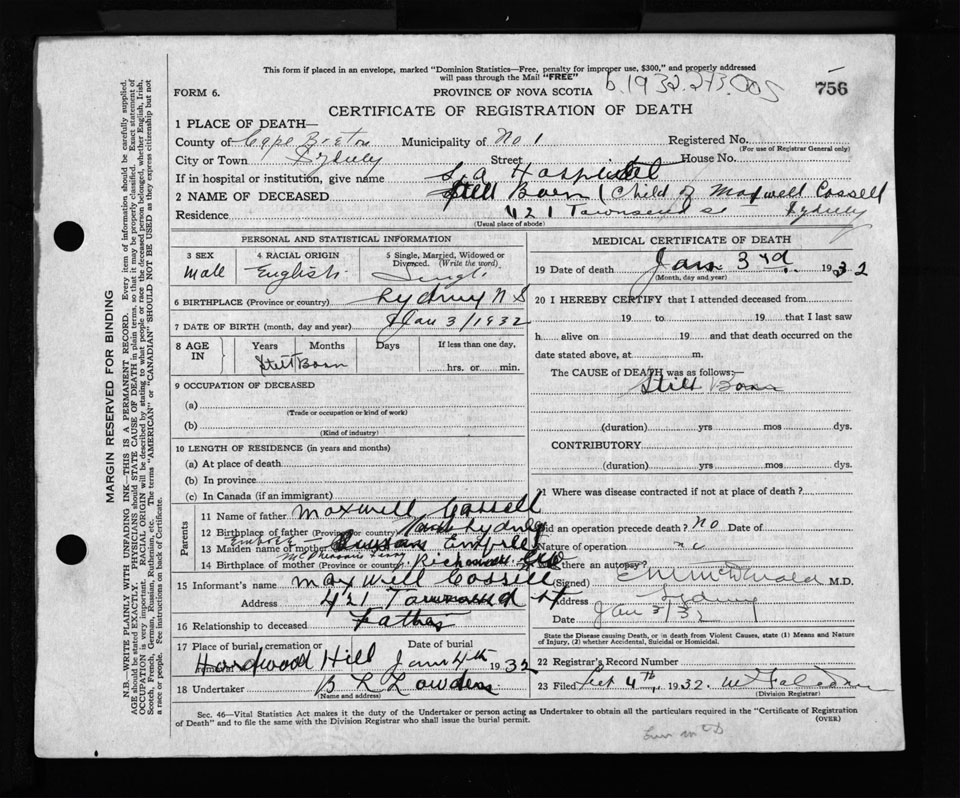 This form if placed in an envelope, marked "Dominion Statistics—Free, penalty for improper use, $300," and properly addressed
will pass through the Mail "FREE"
FORM 6. PROVINCE OF NOVA SCOTIA 756
CERTIFICATE OF REGISTRATION OF DEATH
1 PLACE OF DEATH—
County of Cape Breton Municipality of No 1 Registered No.
(For use of Registrar General only)
City or Town Sydney Street House No.
If in hospital or institution, give name S.A. Hospital
2 NAME OF DECEASED Still Born (Child of Maxwell Cossell
Residence 421 Townsend St Sydney
(Usual place of abode)
PERSONAL AND STATISTICAL INFORMATION
3 SEX 4 RACIAL ORIGIN 5 Single, Married, Widowed or
Divorced. (Write the word)
Male English Single
6 BIRTHPLACE (Province or country) Sydney N S
7 DATE OF BIRTH (month, day and year) Jan 3/1932
8 AGE IN Years Months Days If less than one day,
Still Born hrs. or min.
9 OCCUPATION OF DECEASED
(a)
(Trade or occupation or kind of work)
(b)
(Kind of industry)
10 LENGTH OF RESIDENCE (in years and months)
(a) At place of death
(b) In province
(c) In Canada (if an immigrant)
Parents
11 Name of father Maxwell Cossell
12 Birthplace of father (Province or country) North Sydney
13 Maiden name of mother
14 Birthplace of mother (Province or country)
15 Informant's name Maxwell Cossell
Address 421 Townsend St
16 Relationship to deceased Father
17 Place of burial, cremation or Date of burial
Hardwood Hill Jan 4th 1932
18 Undertaker B L Lowden
(Name and address)
MEDICAL CERTIFICATE OF DEATH
19 Date of death Jan 3rd. 1932
(Month, day and year)
20 I HEREBY CERTIFY that I attended deceased from
19 to 19 that I last saw
h alive on 19 and that death occurred on the
date stated above, at m.
The CAUSE of DEATH was as follows:—
Still Born
(duration) yrs mos dys.
CONTRIBUTORY
(duration) yrs mos dys.
21 Where was disease contracted if not at place of death?
Did an operation precede death? No Date of
Nature of operation
Was there an autopsy? no
(Signed) M.D.
Address Sydney
Date Jan 3/32
State the Disease causing Death, or in death from Violent Causes, state (1) Means and Nature
of Injury, (2) whether Accidental, Suicidal or Homicidal.
22 Registrar's Record Number
23 Filed 4th, 1932.
(Division Registrar)
Sec. 46—Vital Statistics Act makes it the duty of the Undertaker or person acting as Undertaker to obtain all the particulars required in the "Certificate of Registration
of Death" and to file the same with the Division Registrar who shall issue the burial permit. (OVER)
MARGIN RESERVED FOR BINDING
N.B.—WRITE PLAINLY WITH UNFADING INK—THIS IS A PERMANENT RECORD. Every item of information should be carefully supplied.
AGE should be stated EXACTLY. PHYSICIANS should STATE CAUSE OF DEATH in plain terms, so that it may be properly classified. Exact statement of
OCCUPATION is very important. RACIAL ORIGIN will be described by stating to what people or race the deceased person belonged, whether English, Irish,
Scotch, French, German, Russian, Ruthenian, etc. The terms "AMERICAN" or "CANADIAN" SHOULD NOT BE USED as they express citizenship but not
a race or people. See instructions on back of Certificate.